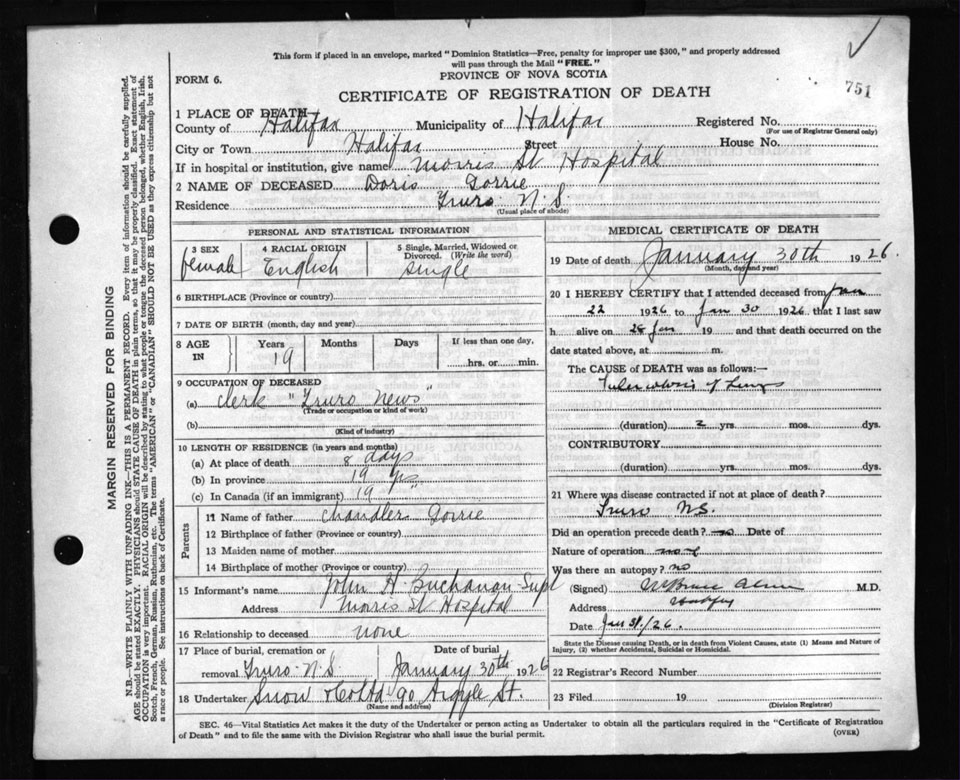 This form if placed in an envelope, marked "Dominion Statistics—Free, penalty for improper use $300," and properly addressed
will pass through the Mail "FREE."
FORM 6.
PROVINCE OF NOVA SCOTIA
CERTIFICATE OF REGISTRATION OF DEATH
751
1 PLACE OF DEATH
County of Halifax Municipality of Halifax Registered No.
(For use of Registrar General only)
City or Town Halifax Street House No.
If in hospital or institution, give name Morris St Hospital
2 NAME OF DECEASED Doris Gorrie
Residence Truro N.S.
(Usual place of abode)
PERSONAL AND STATISTICAL INFORMATION
3 SEX 4 RACIAL ORIGIN 5 Single, Married, Widowed or
Divorced. (Write the word)
female English single
6 BIRTHPLACE (Province or country)
7 DATE OF BIRTH (month, day and year)
8 AGE IN Years Months Days If less than one day,
19 hrs. or min.
9 OCCUPATION OF DECEASED
(a) Clerk "Truro News"
(Trade or occupation or kind of work)
(b)
(Kind of industry)
10 LENGTH OF RESIDENCE (in years and months)
(a) At place of death 8 days
(b) In province 19 yrs
(c) In Canada (if an immigrant) 19 "
Parents
11 Name of father Chandler Gorrie
12 Birthplace of father (Province or country)
13 Maiden name of mother
14 Birthplace of mother (Province or country)
15 Informant's name John H Buchanan Supt
Address Morris St Hospital
16 Relationship to deceased none
17 Place of burial, cremation or Date of burial
removal Truro N.S. January 30th 1926
18 Undertaker Snow & Co Ltd 90 Argyle St.
(Name and address)
MEDICAL CERTIFICATE OF DEATH
19 Date of death January 30th 1926.
(Month, day and year)
20 I HEREBY CERTIFY that I attended deceased from Jan
22 1926 to Jan 30 1926 that I last saw
h alive on 28 Jan 19 and that death occurred on the
date stated above, at m.
The CAUSE OF DEATH was as follows:—
Tuberculosis of Lungs
(duration) 2 yrs. mos. dys.
CONTRIBUTORY
(duration) yrs. mos. dys.
21 Where was disease contracted if not at place of death?
Truro N.S.
Did an operation precede death? no Date of
Nature of operation
Was there an autopsy? no
(Signed) M.D.
Address
Date Jan 31/26.
State the Disease causing Death, or in death from Violent Causes, state (1) Means and Nature of
Injury, (2) whether Accidental, Suicidal or Homicidal.
22 Registrar's Record Number
23 Filed 19
(Division Registrar)
SEC. 46—Vital Statistics Act makes it the duty of the Undertaker or person acting as Undertaker to obtain all the particulars required in the "Certificate of Registration
of Death" and to file the same with the Division Registrar who shall issue the burial permit.
(OVER)
MARGIN RESERVED FOR BINDING
N.B.—WRITE PLAINLY WITH UNFADING INK—THIS IS A PERMANENT RECORD. Every item of information should be carefully supplied.
AGE should be stated EXACTLY. PHYSICIANS should STATE CAUSE OF DEATH in plain terms, so that it may be properly classified. Exact statement of
OCCUPATION is very important. RACIAL ORIGIN will be described by stating to what people or tongue the deceased person belonged, whether English, Irish,
Scotch, French, German, Russian, Ruthenian, etc. The terms "AMERICAN" or "CANADIAN" SHOULD NOT BE USED as they express citizenship but not
a race or people. See instructions on back of Certificate.